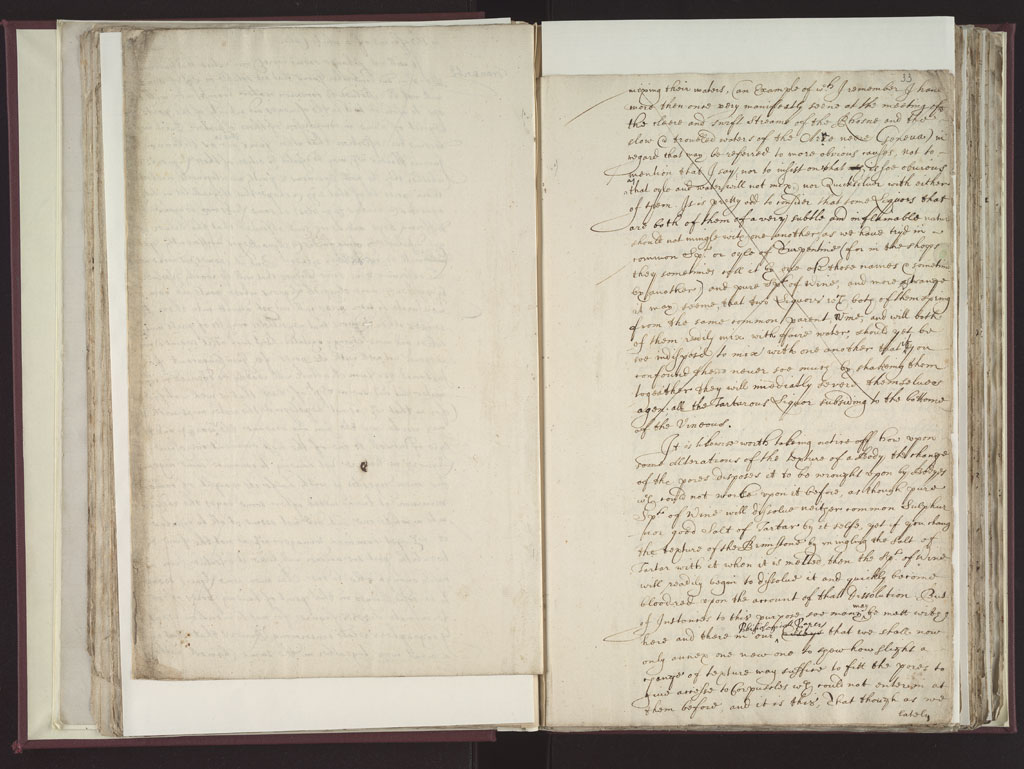 33
mixing their waters, (an Example of wch I remember I have
more then once very manifestly seene at the meeting of
the cleere and swift Streame of the Rhosne and the
slow & troubled waters of the neere Geneva) in
regard that may be referred to more obvious causes, not to
mention that I say, nor to insist on that soe obvious
as that oyle and water will not mix, nor Quicksilver with either
of them. It is pretty odd to consider that some Liquors that
are both of them of a very subtle and inflamable nature
should not mingle with one another, as we have tryd in
common Spt. or oyle of Turpentine (for in the shops
they sometimes call it by one of those names & sometimes
by another) and pure Spt. of Wine, and more strange
it may seeme, that two Liquors both of them spring
from the same common parent Wine, and will both
of them readily mix with faire water, should yet be
soe indispos'd to mix with one another that if you
confound them never soe much by shakeing them
together they will imediatly severe themselves
agen; all the Tartarous Liquor subsiding to the bottome
of the Vineous.
It is likewise worth takeing notice off how upon
some alterations of the texture of a body, the change
of the pores disposes it to be wrought upon by bodys
wch could not worke upon it before, as though pure
Spt. of Wine will dissolve neither common Sulphur
nor good Salt of Tartar by it selfe, yet if you change
the texture of the Brimstone by mingling the Salt of
Tartar with it when it is melted, then the Spt. of Wine
will readily begin to dissolve it and quickly become
bloodred upon the account of that Dissolution. But
of Instances to this purpose soe many may be mett with
here and there in our Philosophical Papers that we shall now
only annex one new one to shew how slight a
change of texture may suffice to fitt the pores to
give accesse to Corpuscles wch could not enter in at
them before, and it is this, That though as we
lately